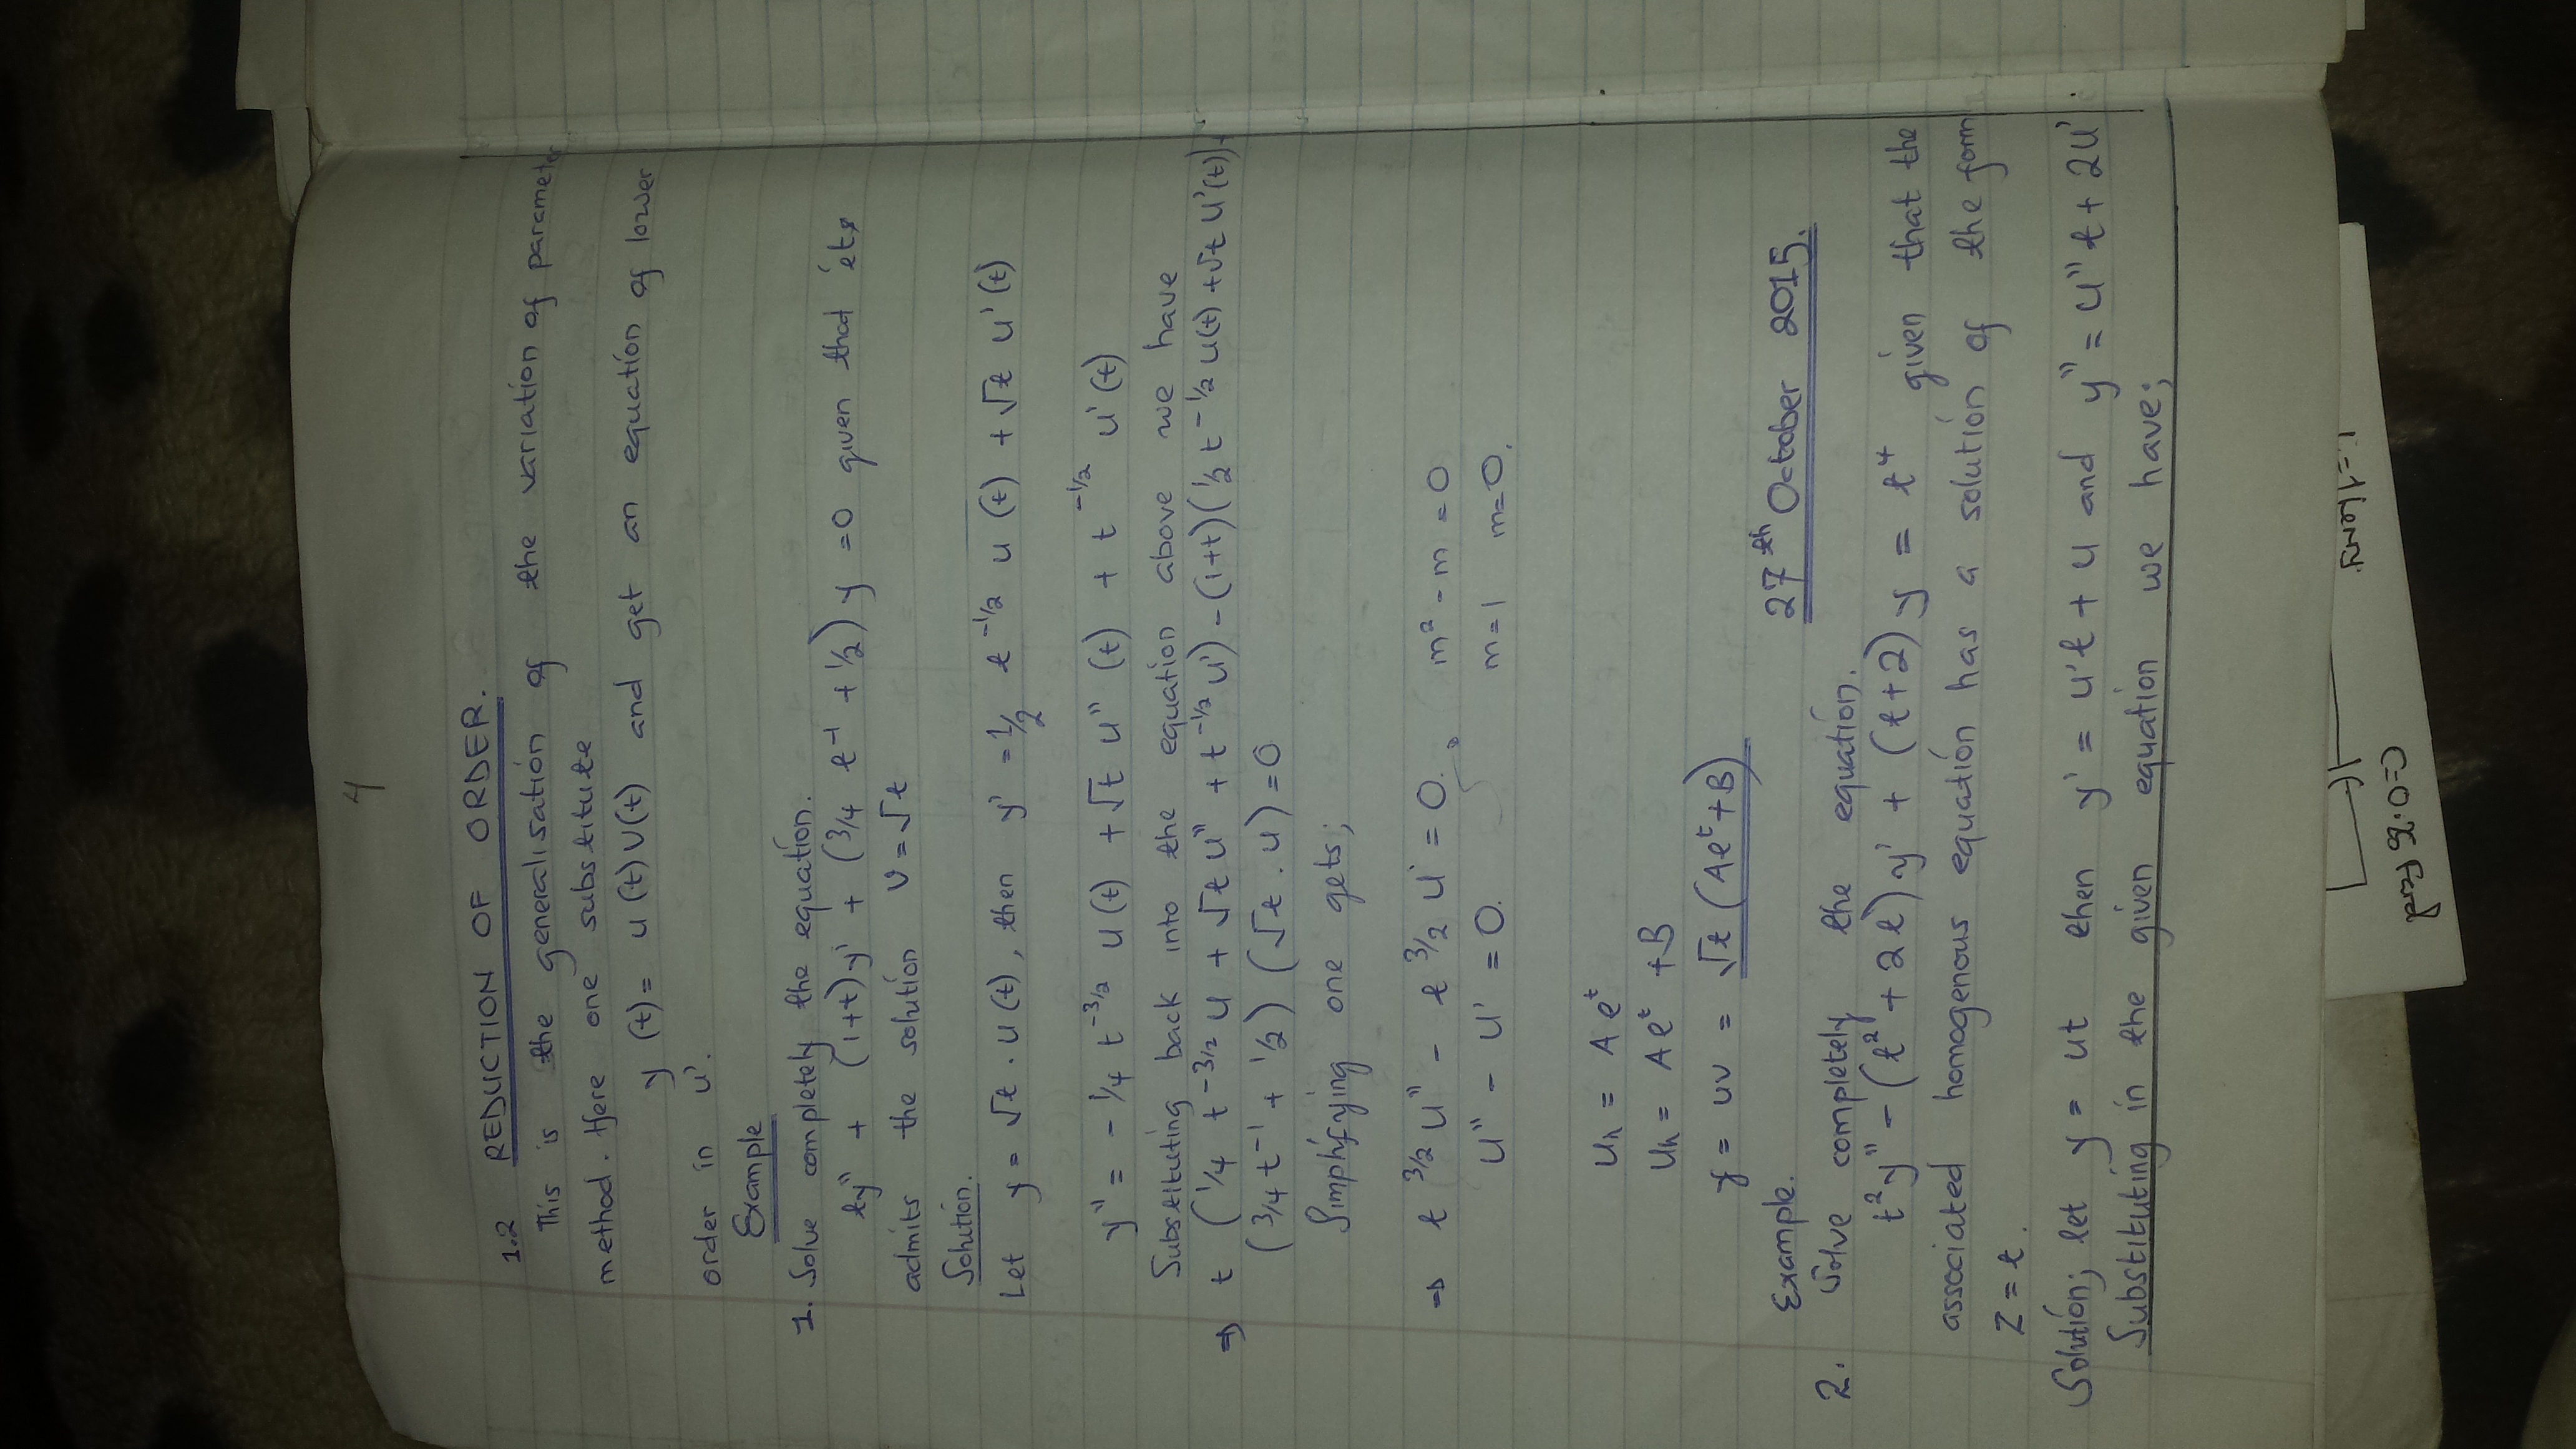 4
1.2 REDUCTION OF ORDER.
This is the generalisation of the variation of parameter
method. Here one substitute
y (t) = u(t)v(t) and get an equation of lower
order in u'.
Example
1. Solve completely the equation.
ty" + (1+t)y' + (3/4 t⁻¹ + 1/2) y = 0 given that it
admits the solution v = √t
Solution.
Let y = √t . u(t), then y' = 1/2 t^-1/2 u(t) + √t u'(t)
y" = - 1/4 t^-3/2 u(t) + √t u"(t) + t^-1/2 u'(t)
Substituting back into the equation above we have
⇒ t (1/4 t^-3/2 u + √t u" + t^-1/2 u') - (1+t)(1/2 t^-1/2 u(t) + √t u'(t)) +
(3/4 t⁻¹ + 1/2) (√t . u) = 0
Simplifying one gets;
⇒ t^3/2 u" - t^3/2 u' = 0. m² - m = 0
u" - u' = 0. m = 1 m = 0.
uh = A e^t
uh = A e^t + B
y = uv = √t (Ae^t + B)
27th October 2015.
Example.
2. Solve completely the equation.
t²y" - (t² + 2t)y' + (t+2)y = t⁴ given that the
associated homogenous equation has a solution of the form
Z = t.
Solution; let y = ut then y' = u't + u and y" = u"t + 2u'
Substituting in the given equation we have;